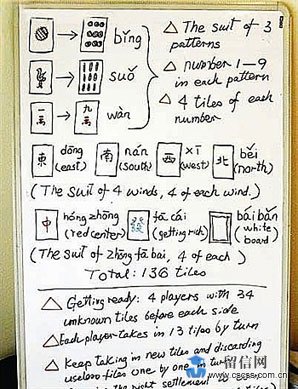 → bǐng
△ The suit of 3 patterns
→ suǒ
△ number 1-9 in each pattern
一萬 → 九萬 wàn
△ 4 tiles of each number
東 dōng (east) 南 nán (south) 西 xī (west) 北 běi (north)
(The suit of 4 winds, 4 of each wind.)
中 hóng zhōng (red center) 發 fā cái (getting rich) bái bǎn (white board)
(The suit of zhōng fā bái, 4 of each)
Total: 136 tiles
△ Getting ready: 4 players with 34 unknown tiles before each side
△ Each player takes in 13 tiles by turn
△ Keep taking in new tiles and discarding useless tiles one by one in turn
the right settlement
留信网
www.cscse.com.cn